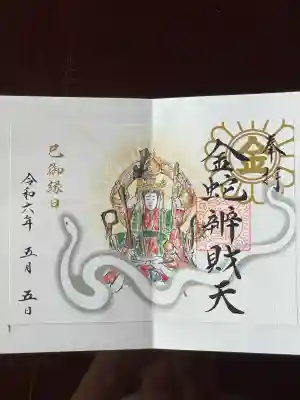 奉拝
金
金蛇辨財天
巳御縁日
令和六年 五月 五日